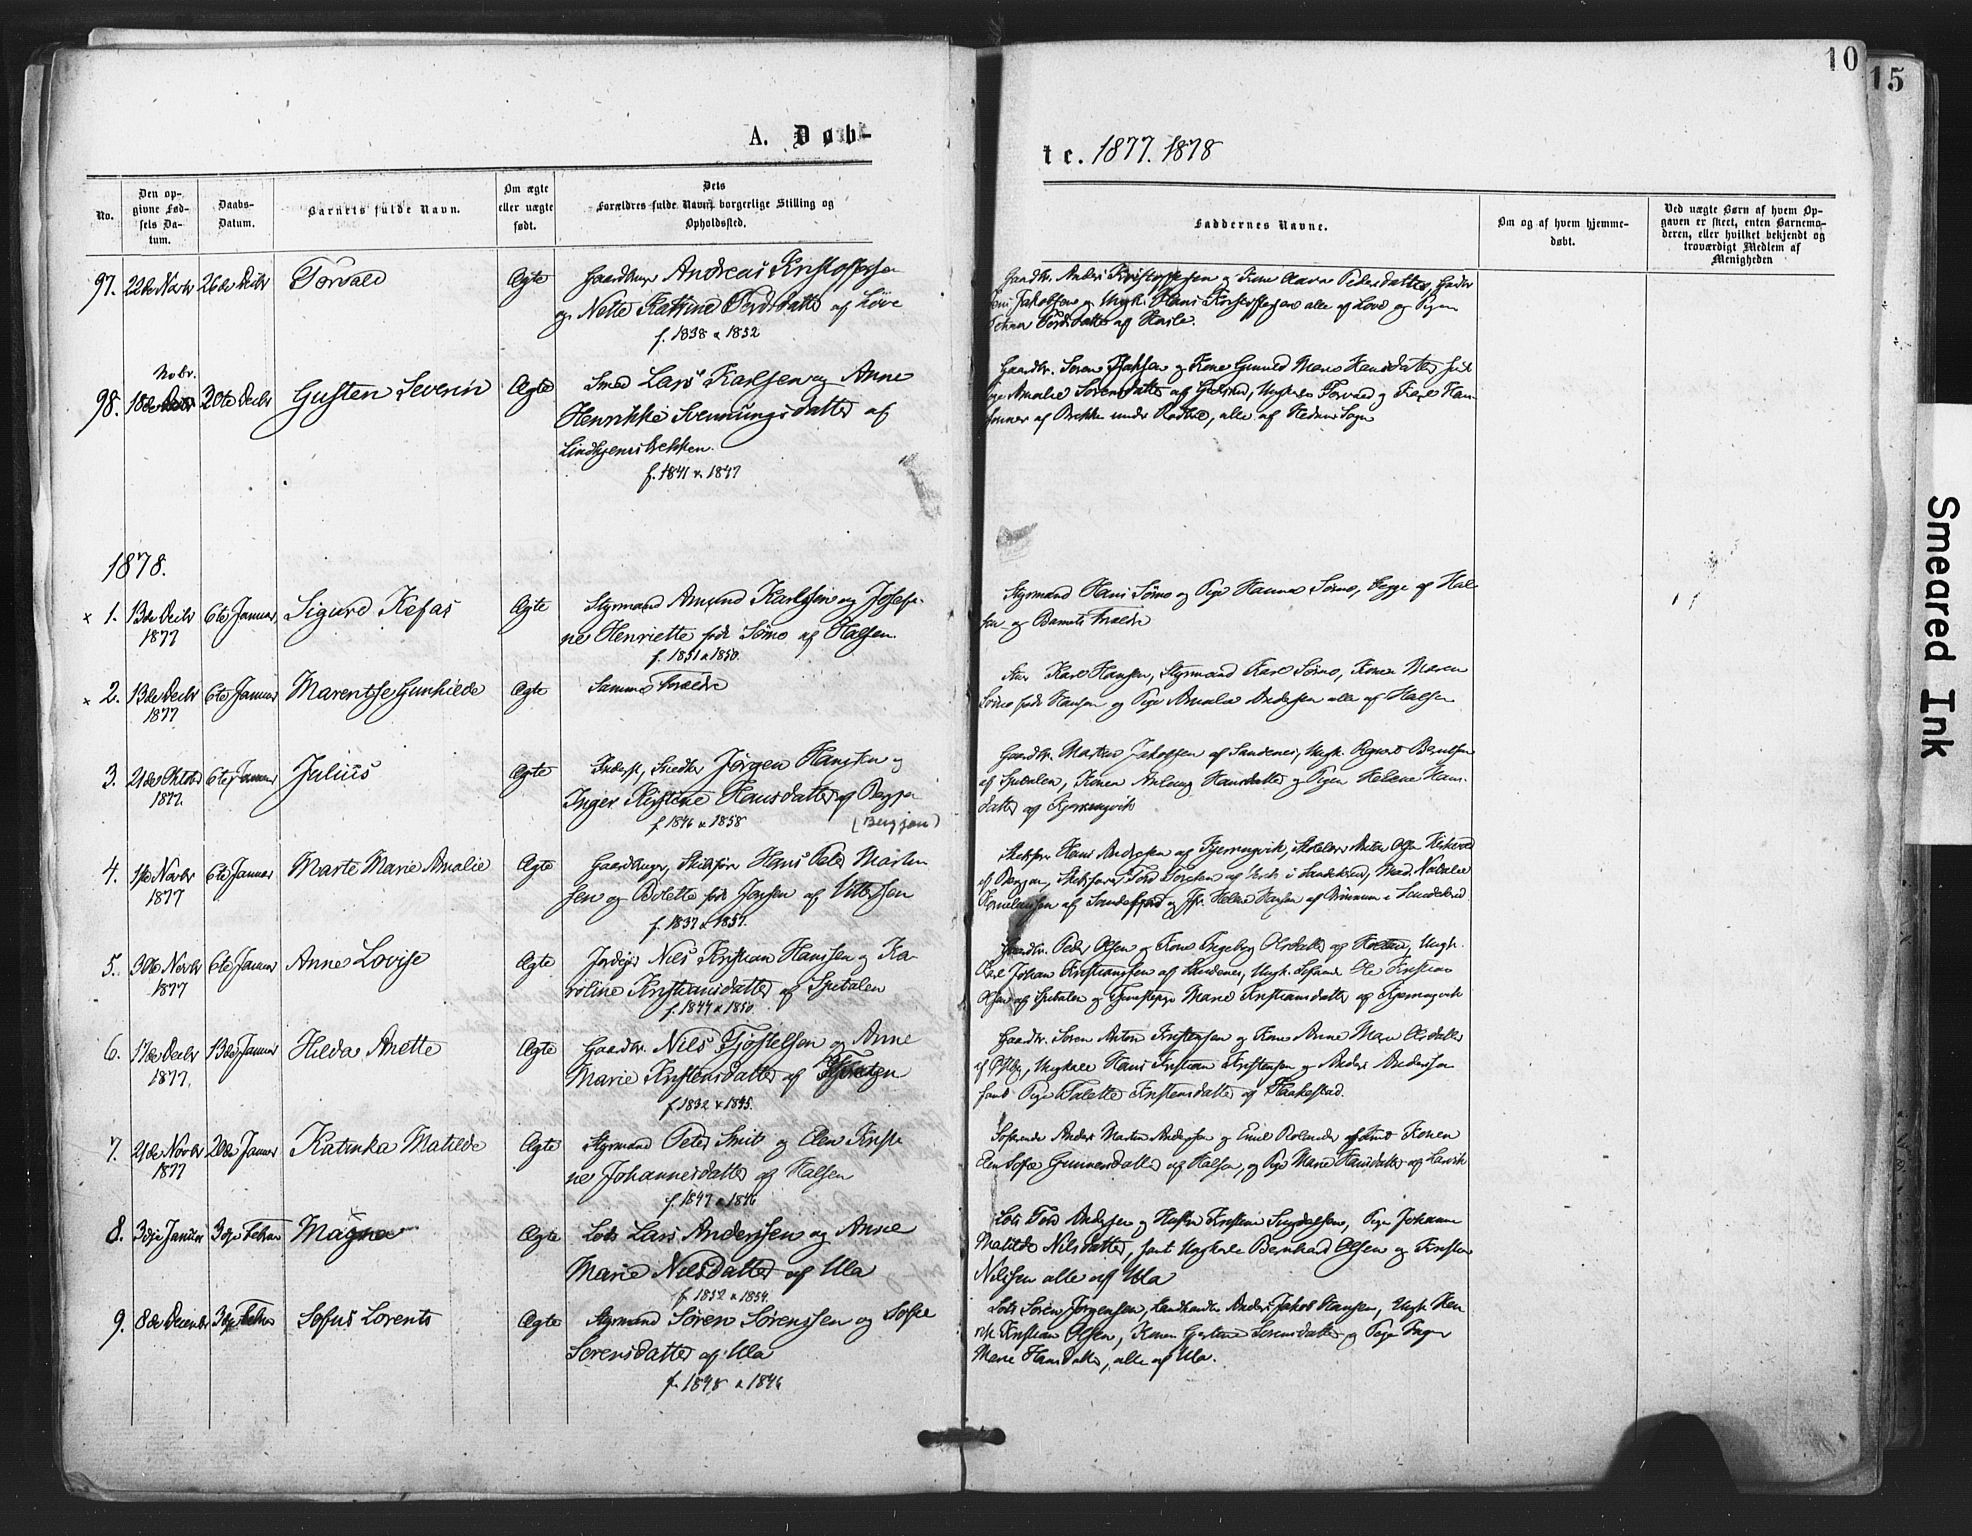 10
15
A. Døb-
te. 1877. 1878
No.
Den op-
givne Fød-
sels Da-
tum.
Daabs-
Datum.
Barnets fulde Navn.
Om ægte
eller uægte
født.
Dets
Forældres fulde Navn, borgerlige Stilling og
Opholdssted.
Faddernes Navne.
Om og af hvem hjemme-
døbt.
Ved uægte Børn af hvem Op-
gaven er skeet, enten Barnemo-
deren, eller hvilket bekjendt og
troværdigt Medlem af
Menigheden
97. 22de Novbr 26de Decbr Torvald Ægte Gaardbruger Andreas Kristoffersen
og Nette Katrine Tordsdatter af Løve
f. 1838 & 1852
Gaardbr. Anders Kristoffersen og Kone Maren Pedersdatter, Gaardbr
Jakobsen og Ungk. Hans Kristoffersen alle af Love og Pigen
Tordsdatter af Hasle.
Novbr.
98. 18de Decbr 30te Decbr Gusten Severin Ægte Smed Lars Karlsen og Anne
Henrikke Svennungsdatter af
Lindhjemsbekken.
f. 1841 & 1847
Gaardbr. Søren Isaksen og Kone Gunild Marie Hansdatter, samt
Pige Amalie Sørensdatter af Gulsrud, Ungkarle Torvald og Karl Han-
sønner af Brekke under Rødbøl, alle af Hedrum Sogn
1878.
x 1. 13de Decbr 6te Januar Sigurd Kefas Ægte Styrmand Amund Karlsen og Josefi-
1877
ne Henriette født Sømo af Halsen.
f. 1851 & 1850.
Styrmand Hans Sømo og Pige Hanna Sømo, begge af Hal-
sen og Barnets Forældre
x 2. 13de Decbr 6te Januar Marentse Gunhilde Ægte Samme Forældre
1877
Karl Hansen, Styrmand Karl Sømo, Konen Maren
Sømo født Hansen og Pige Amalie Andersen alle af Halsen
3. 21de Oktober 6te Januar Julius Ægte Inderst, Snedker Jørgen Hansen og
1877.
Inger Kirstine Hansdatter af Bergjan
f. 1846 & 1858 (Bergjan)
Gaardbr. Markus Jakobsen af Sandenes, Ungk. Berntsen
af Spitalen, Konen Anlaug Hansdatter og Pigen Helene Hans-
datter af Kjerringvik
4. 1ste Novbr 6te Januar Marte Marie Amalie Ægte Gaardbruger, Skibsfører Hans Peter Marten-
1877
sen og Bolette født Jansen af Vittersøen
f. 1837 & 1857.
Skibsfører Hans Andresen af Kjerringvik, Anton Olsen
af Bergjan, Skibsfører Tord i Sandeherred, Mad. Natalie
Kornelausen af Sandefjord og Jfr. Helene Hansen af i Sandeherred
5. 30te Novbr 6te Januar Anne Lovise Ægte Jordeier Nils Kristian Hansen og Ka-
1877
roline Kristiansdatter af Spitalen
f. 1844 & 1850.
Gaardbr. Peder Olsen og Kone Ingeborg Olsdatter af Ungk.
Karl Johan Kristiansen af Sandenes, Ungk. Sømand Ole Kristian
Olsen af Spitalen og Tjenestepige Marie Kristiansdatter af Kjerringvik
6. 17de Decbr 13de Januar Hilda Anette Ægte Gaardbr. Nils Tjøstelsen og Anne
1877.
Marie Kristensdatter af
f. 1832 & 1845.
Gaardbr. Søren Anton Kristensen og Kone Anne Marie Olsdatter
af Østby, Ungkarle Hans Kristian Kristensen og Anders Andersen
samt Pige Talette Kristensdatter af Haakestad.
7. 21de Novbr 20de Januar Katinka Matilde Ægte Styrmand Peter Smit og Elen Kristi-
1877
ne Johannesdatter af Halsen
f. 1847 & 1846
Søfarende Anders Martin Andersen og Emil Rolandsen samt Konen
Elen Sofie Gunnersdatter af Halsen, og Pige Marie Hansdatter af Larvik
8. 3die Januar 3die Februar Magna Ægte Lods Lars Anderssen og Anne
Marie Nilsdatter af Ula
f. 1852 & 1854.
Lods Tord Andersen og Hustru Kristine Sigdalsen, Pige Johanne
Matilde Nilsdatter, samt Ungkarle Bernhard Olsen og Kristen
Nilssen alle af Ula
9. 8de December 3die Februar Sofus Lorents Ægte Styrmand Søren Sørenssen og Sofie
Sørensdatter af Ula
f. 1848 & 1846
Lods Søren Jørgensen, Landhandler Anders Jakob Hansen, Ungk. Hen-
rik Kristian Olsen, Konen Gjertine Sørensdatter og Pige Inger
Marie Hansdatter, alle af Ula.
Smeared Ink